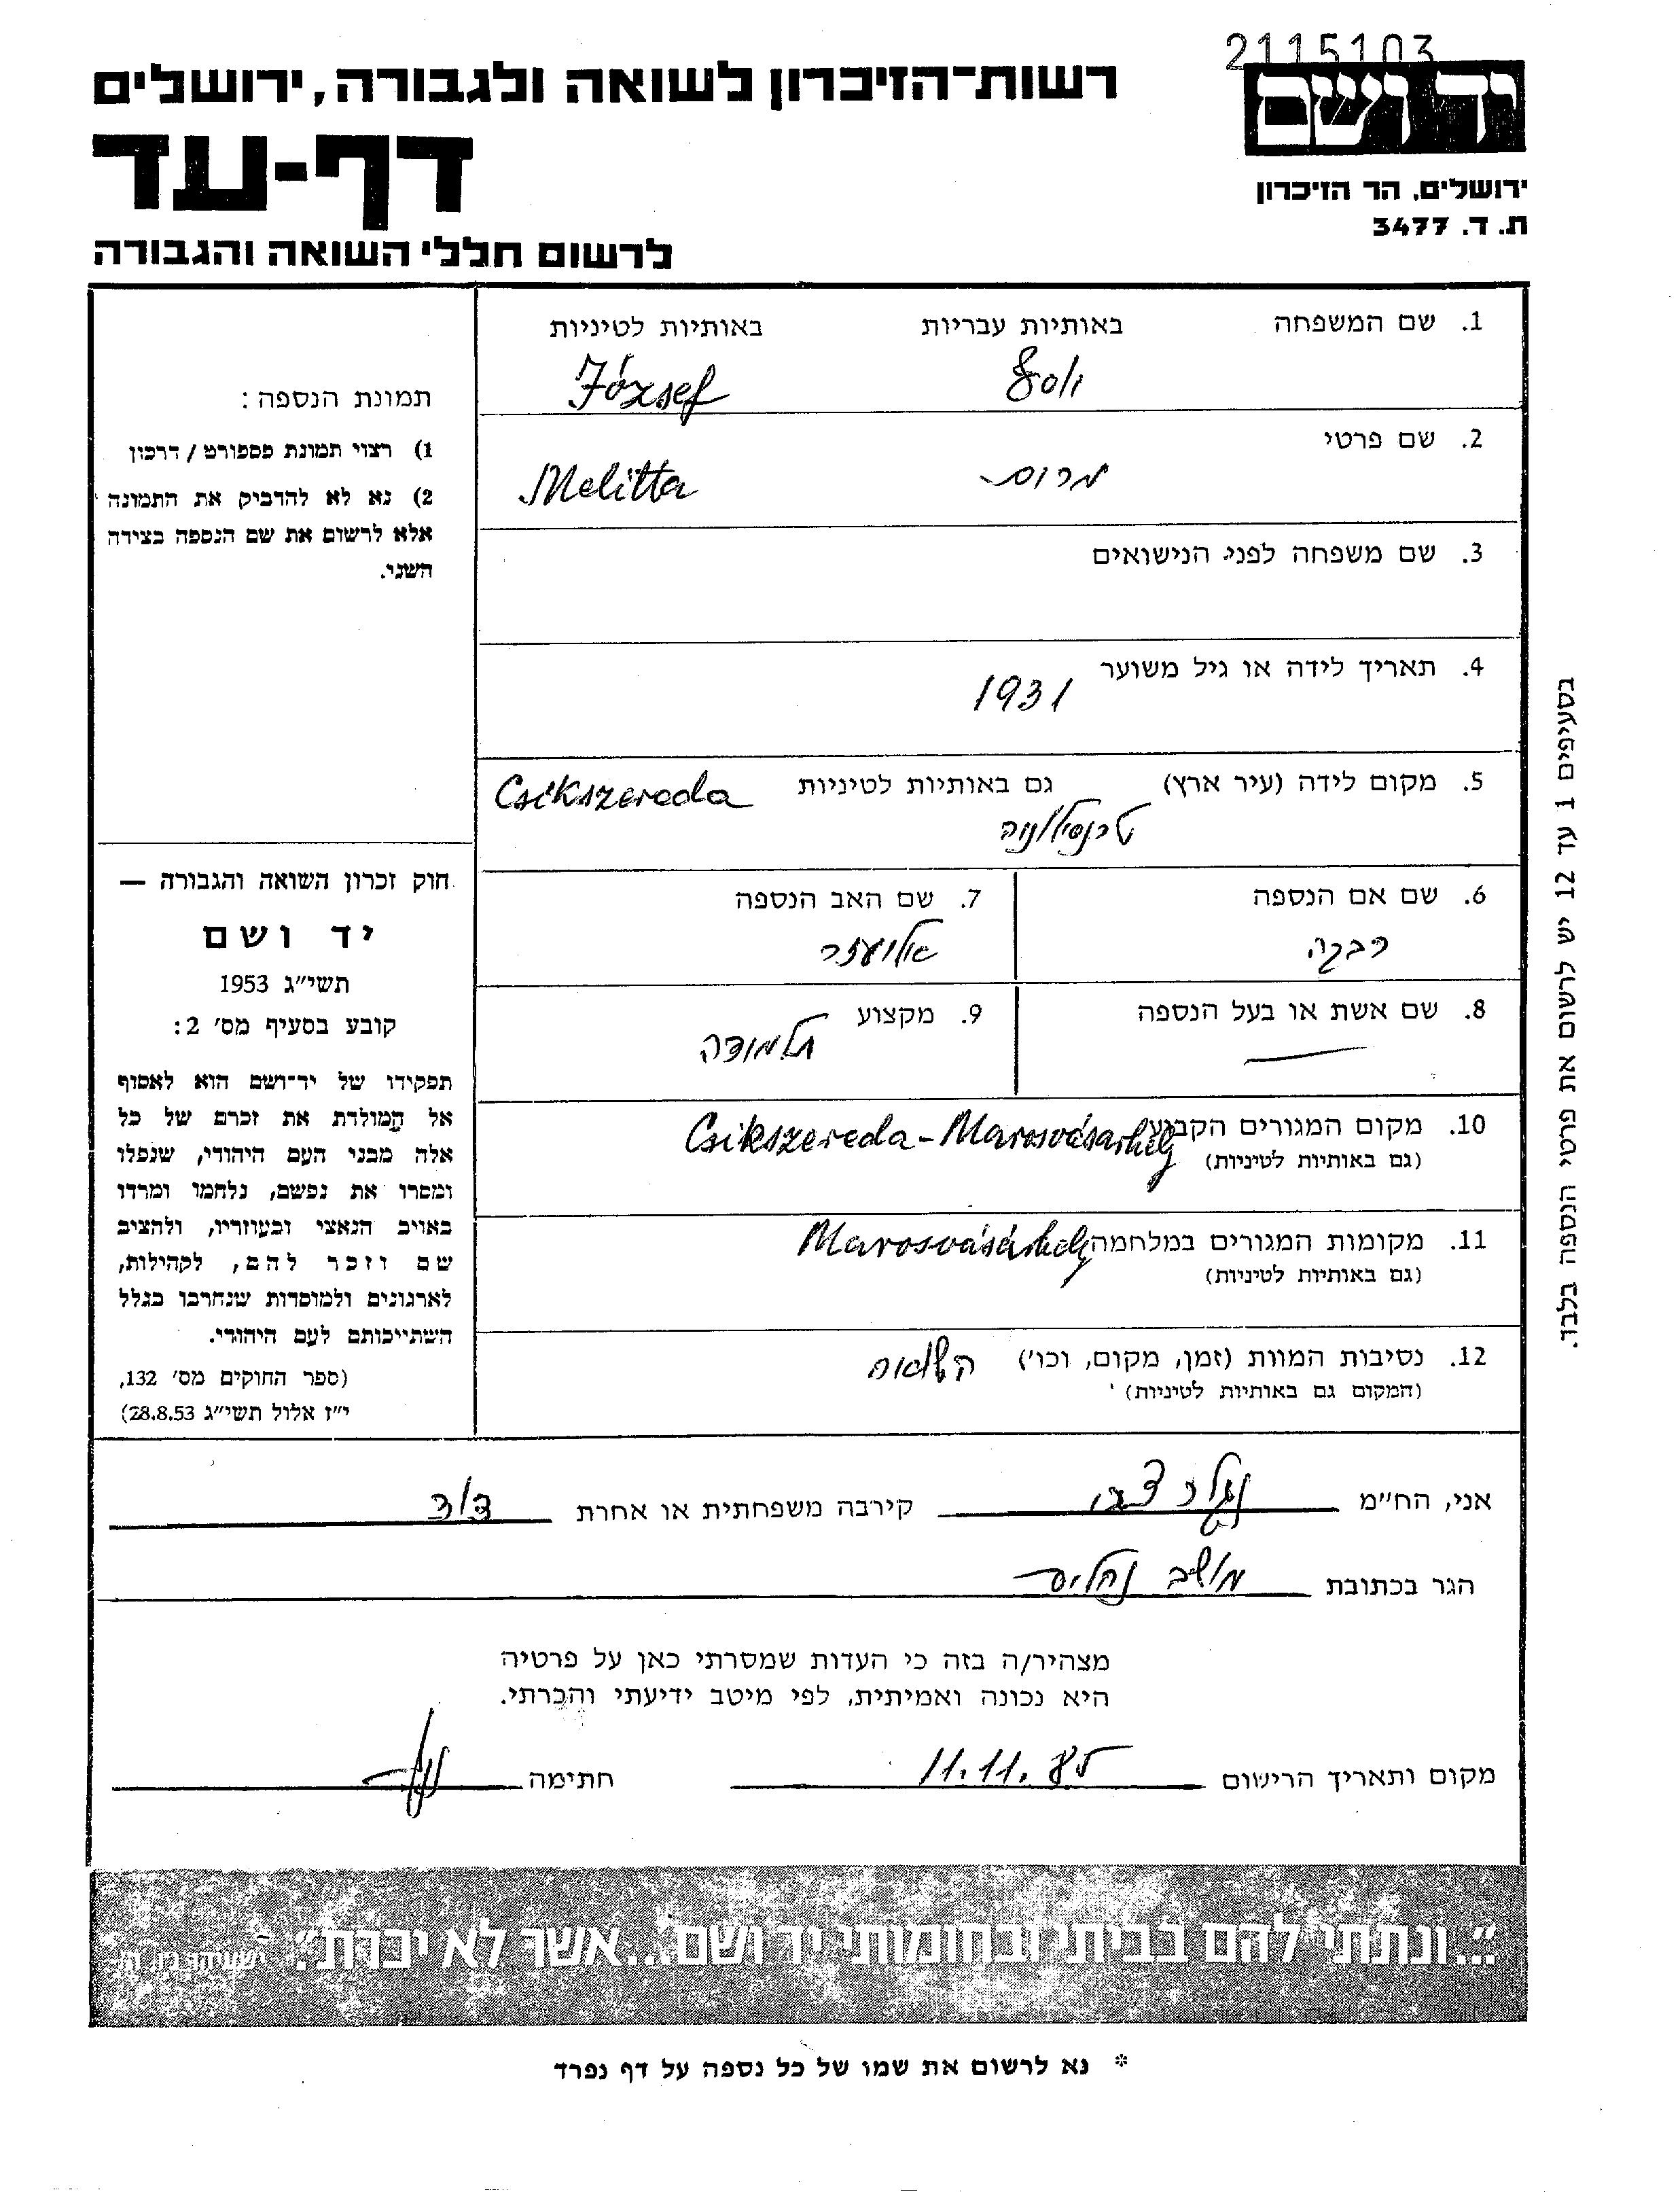 2115103
יד ושם
רשות־הזיכרון לשואה ולגבורה, ירושלים
דף-עד
לרשום חללי השואה והגבורה
ירושלים, הר הזיכרון
ת. ד. 3477
1. שם המשפחה באותיות עבריות באותיות לטיניות
יוסף József
2. שם פרטי
מרים Melitta
3. שם משפחה לפני הנישואים
4. תאריך לידה או גיל משוער
1931
5. מקום לידה (עיר ארץ) גם באותיות לטיניות Csikszereda
טרנסילוניה
6. שם אם הנספה 7. שם האב הנספה
רבקה אליעזר
8. שם אשת או בעל הנספה 9. מקצוע
תלמידה
10. מקום המגורים הקבוע Csikszereda - Marosvásárhely
(גם באותיות לטיניות)
11. מקומות המגורים במלחמה Marosvásárhely
(גם באותיות לטיניות)
12. נסיבות המוות (זמן, מקום, וכו') השואה
(המקום גם באותיות לטיניות)
תמונת הנספה:
1) רצוי תמונת פספורט / דרכון
2) נא לא להדביק את התמונה
אלא לרשום את שם הנספה בצידה
השני.
חוק זכרון השואה והגבורה —
יד ושם
תשי"ג 1953
קובע בסעיף מס' 2:
תפקידו של יד־ושם הוא לאסוף
אל המולדת את זכרם של כל
אלה מבני העם היהודי, שנפלו
ומסרו את נפשם, נלחמו ומרדו
באויב הנאצי ובעוזריו, ולהציב
שם וזכר להם, לקהילות,
לארגונים ולמוסדות שנחרבו בגלל
השתייכותם לעם היהודי.
(ספר החוקים מס' 132,
י"ז אלול תשי"ג 28.8.53)
בסעיפים 1 עד 12 יש לרשום את פרטי הנספה בלבד.
אני, הח"מ צבי קירבה משפחתית או אחרת דוד
הגר בכתובת מושב נחלים
מצהיר/ה בזה כי העדות שמסרתי כאן על פרטיה
היא נכונה ואמיתית, לפי מיטב ידיעתי והכרתי.
מקום ותאריך הרישום 11.11.85 חתימה
"...ונתתי להם בביתי ובחומותי יד ושם...אשר לא יכרת". ישעיהו נו, ה'
* נא לרשום את שמו של כל נספה על דף נפרד